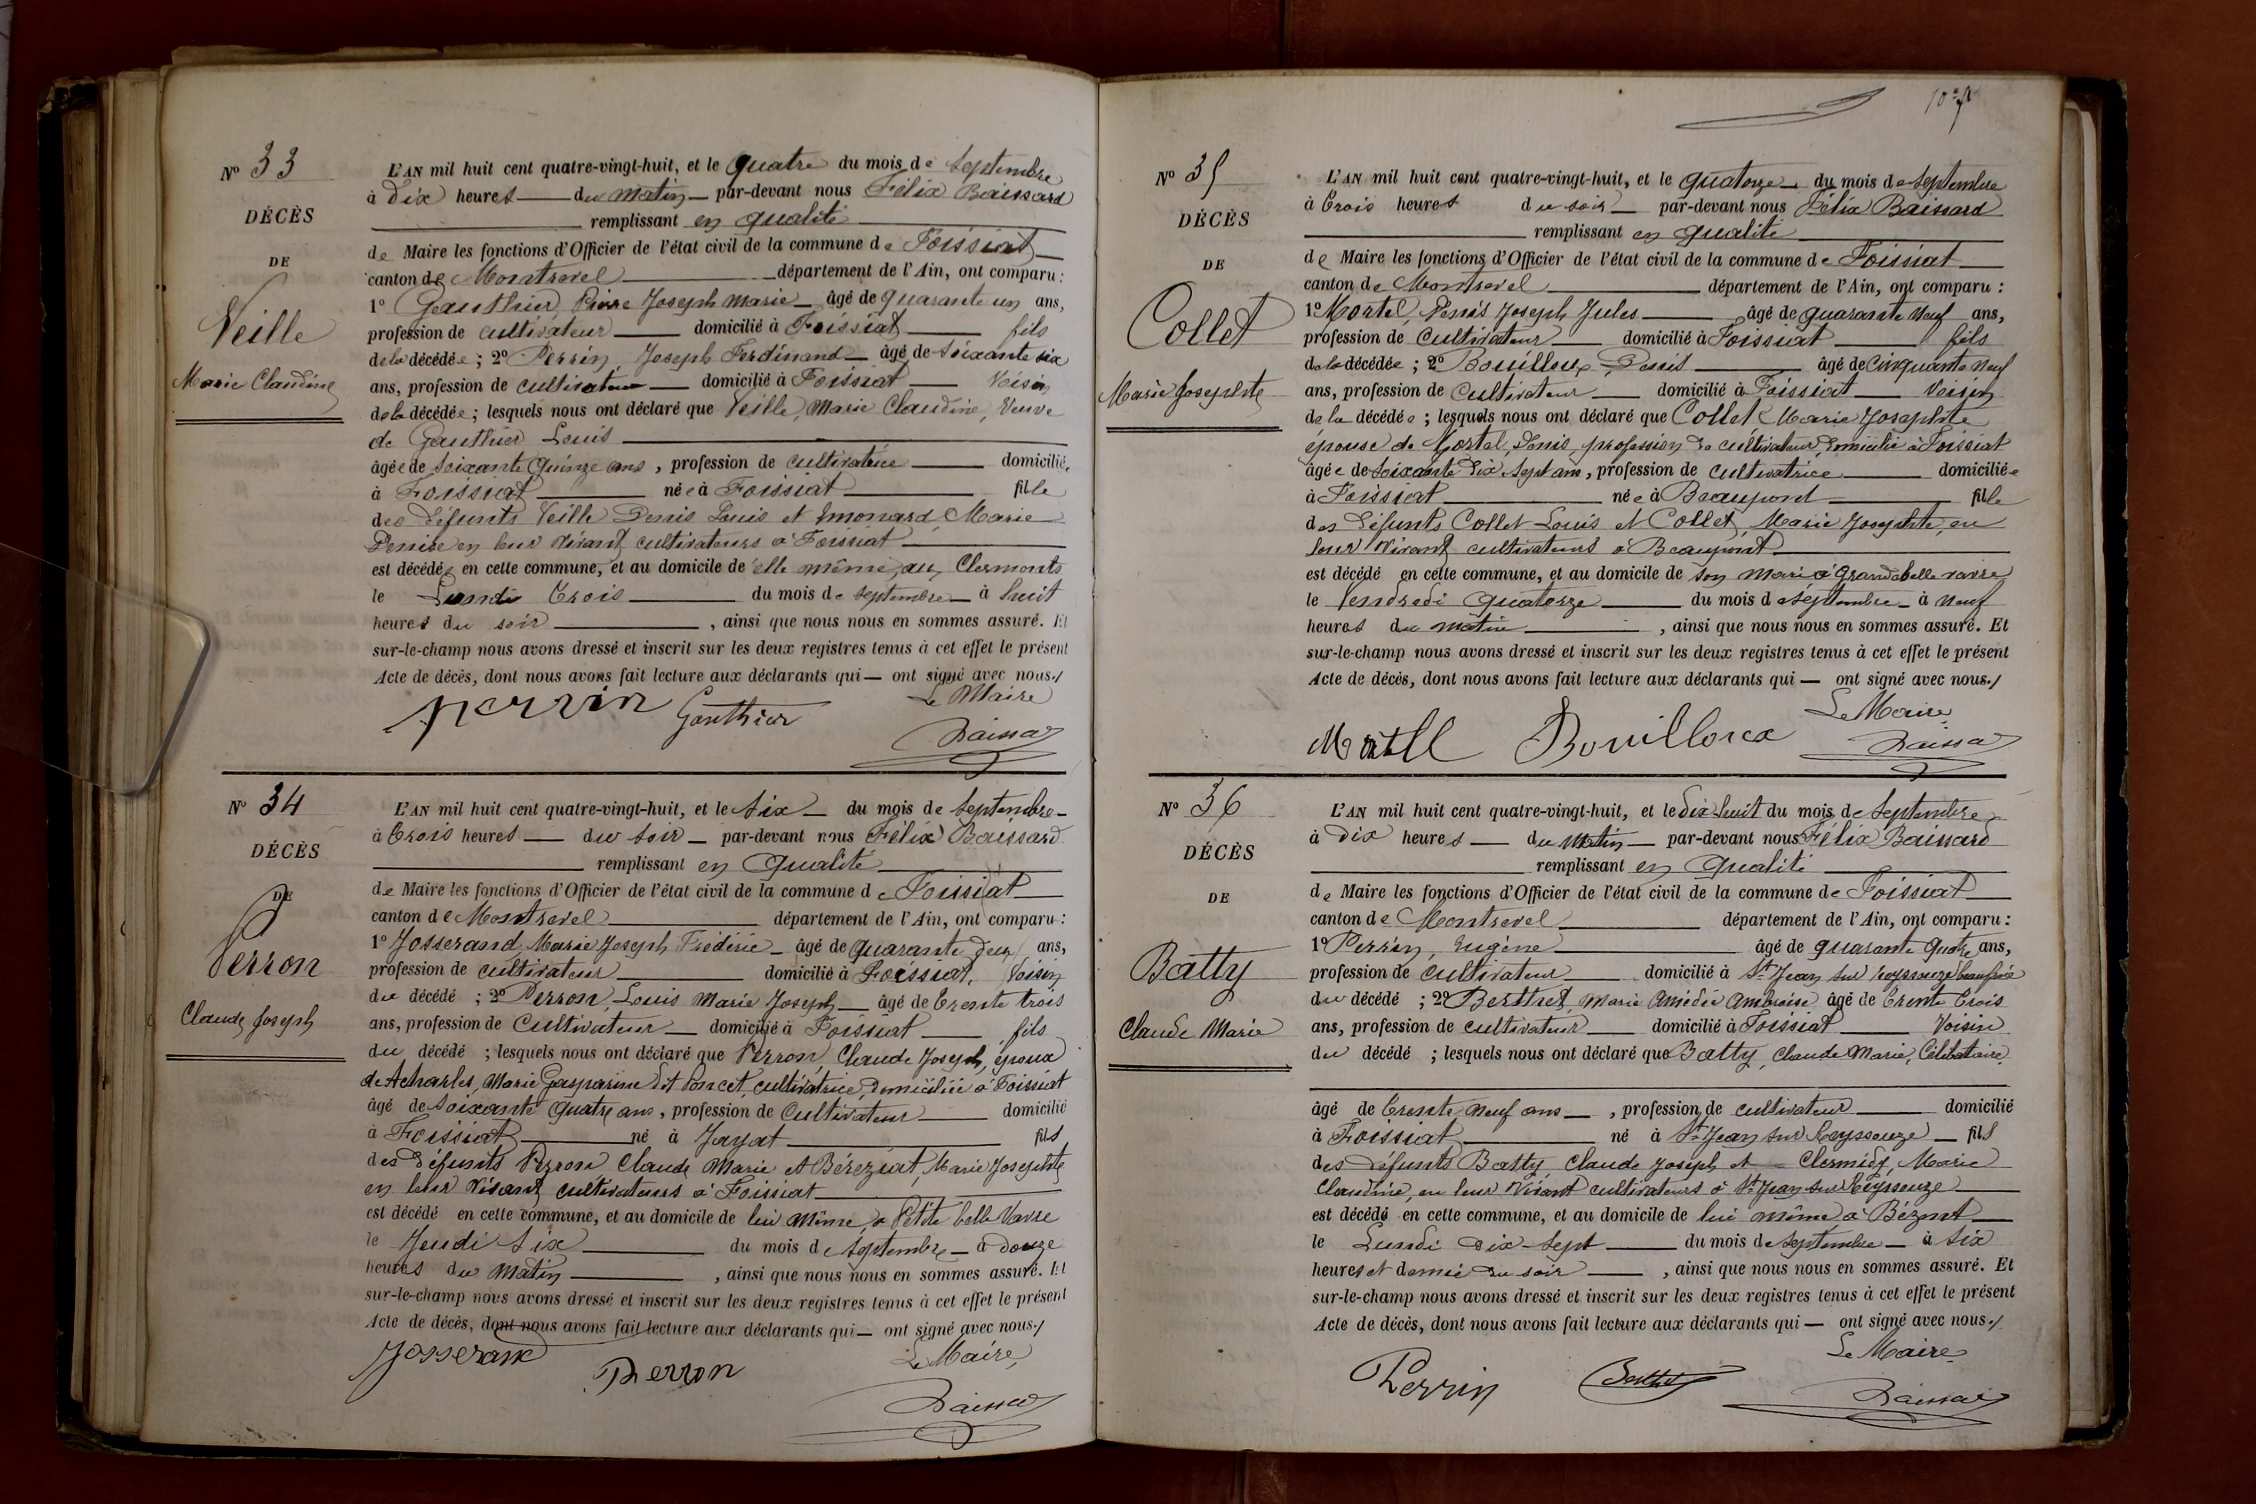 N° 33
DÉCÈS
DE
Veille
Marie Claudine
L'AN mil huit cent quatre-vingt-huit, et le quatre du mois de Septembre
à Dix heures du matin par-devant nous Félix Baissard
remplissant en qualité
de Maire les fonctions d'Officier de l'état civil de la commune de Foissiat
canton de Montrevel département de l'Ain, ont comparu :
1° Gauthier, Pierre Joseph Marie âgé de quarante un ans,
profession de cultivateur domicilié à Foissiat fils
de la décédée ; 2° Perrin, Joseph Ferdinand âgé de soixante six
ans, profession de cultivateur domicilié à Foissiat Voisin
de la décédée ; lesquels nous ont déclaré que Veille, Marie Claudine, Veuve
de Gauthier Louis
âgée de soixante quinze ans, profession de cultivatrice domiciliée
à Foissiat née à Foissiat fille
des défunts Veille Denis Louis et Marie
Denise en leur vivant cultivateurs à Foissiat
est décédée en cette commune, et au domicile de elle même, aux Clermonts
le Lundi Trois du mois de septembre à huit
heures du soir, ainsi que nous nous en sommes assuré. Et
sur-le-champ nous avons dressé et inscrit sur les deux registres tenus à cet effet le présent
Acte de décès, dont nous avons fait lecture aux déclarants qui ont signé avec nous./
Le Maire
Perrin Gauthier
Baissard
N° 34
DÉCÈS
DE
Perron
Claude Joseph
L'AN mil huit cent quatre-vingt-huit, et le six du mois de Septembre
à Trois heures du soir par-devant nous Félix Baissard
remplissant en qualité
de Maire les fonctions d'Officier de l'état civil de la commune de Foissiat
canton de Montrevel département de l'Ain, ont comparu :
1° Josserand Marie Joseph Frédéric âgé de quarante deux ans,
profession de cultivateur domicilié à Foissiat, Voisin
du décédé ; 2° Perron, Louis Marie Joseph âgé de trente trois
ans, profession de Cultivateur domicilié à Foissiat fils
du décédé ; lesquels nous ont déclaré que Perron, Claude Joseph, époux
de Acharles, Marie Gasparine dit Poncet, cultivatrice, domiciliée à Foissiat
âgé de soixante quatre ans, profession de Cultivateur domicilié
à Foissiat né à Jayat fils
des défunts Perron Claude Marie et Béréziat, Marie Josephte
en leur vivant cultivateurs à Foissiat
est décédé en cette commune, et au domicile de lui même, à Petite belle Vavre
le Jeudi six du mois de septembre à douze
heures du matin, ainsi que nous nous en sommes assuré. Et
sur-le-champ nous avons dressé et inscrit sur les deux registres tenus à cet effet le présent
Acte de décès, dont nous avons fait lecture aux déclarants qui ont signé avec nous./
Le Maire,
Josserand Perron
Baissard
N° 35
DÉCÈS
DE
Collet
Marie Josephte
L'AN mil huit cent quatre-vingt-huit, et le quatorze du mois de septembre
à Trois heures du soir par-devant nous Félix Baissard
remplissant en qualité
de Maire les fonctions d'Officier de l'état civil de la commune de Foissiat
canton de Montrevel département de l'Ain, ont comparu :
1° Mortel, Denis Joseph Jules âgé de quarante neuf ans,
profession de Cultivateur domicilié à Foissiat fils
de la décédée ; 2° Bouilloux Denis âgé de Cinquante neuf
ans, profession de Cultivateur domicilié à Foissiat Voisin
de la décédée ; lesquels nous ont déclaré que Collet Marie Josephte
épouse de Mortel, Denis, profession de cultivateur domicilié à Foissiat
âgée de soixante dix sept ans, profession de cultivatrice domiciliée
à Foissiat née à Beaupont fille
des défunts Collet Louis et Collet, Marie Josephte, en
leur vivant cultivateurs à Beaupont
est décédé en cette commune, et au domicile de son mari à Grande belle vavre
le Vendredi quatorze du mois de septembre à neuf
heures du matin, ainsi que nous nous en sommes assuré. Et
sur-le-champ nous avons dressé et inscrit sur les deux registres tenus à cet effet le présent
Acte de décès, dont nous avons fait lecture aux déclarants qui ont signé avec nous./
Le Maire,
Bouilloux
Baissard
N° 36
DÉCÈS
DE
Batty
Claude Marie
L'AN mil huit cent quatre-vingt-huit, et le dix huit du mois de Septembre
à Dix heures du matin par-devant nous Félix Baissard
remplissant en qualité
de Maire les fonctions d'Officier de l'état civil de la commune de Foissiat
canton de Montrevel département de l'Ain, ont comparu :
1° Perrin, Eugène âgé de quarante quatre ans,
profession de cultivateur domicilié à St Jean sur Reyssouze beaufrère
du décédé ; 2° Berthet, Marie Amédée Ambroise âgé de trente trois
ans, profession de cultivateur domicilié à Foissiat Voisin
du décédé ; lesquels nous ont déclaré que Batty, Claude Marie, Célibataire
âgé de trente neuf ans, profession de cultivateur domicilié
à Foissiat né à St Jean sur Reyssouze fils
des défunts Batty Claude Joseph et Clermidy, Marie
Claudine, en leur vivant cultivateurs à St Jean sur Reyssouze
est décédé en cette commune, et au domicile de lui même, à
le Lundi dix-sept du mois de septembre à six
heures et demie du soir, ainsi que nous nous en sommes assuré. Et
sur-le-champ nous avons dressé et inscrit sur les deux registres tenus à cet effet le présent
Acte de décès, dont nous avons fait lecture aux déclarants qui ont signé avec nous./
Le Maire
Perrin Berthet
Baissard